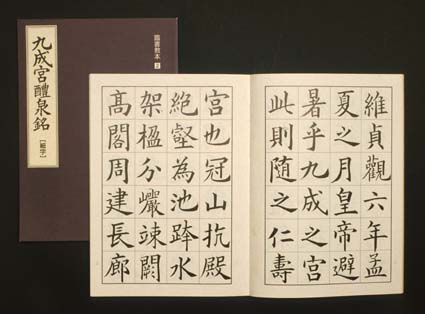 臨書教本 2
九成宮醴泉銘
維貞觀六年孟
夏之月皇帝避
暑乎九成之宮
此則随之仁壽
宮也冠山抗殿
絶壑為池跨水
架楹分巖竦闕
髙閣周建長廊